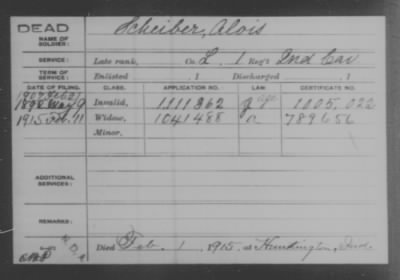 DEAD
Scheiber, Alois
NAME OF SOLDIER:
SERVICE: Late rank, Co. L. 1 Reg't 2nd Cav
TERM OF SERVICE: Enlisted , 1 Discharged , 1
DATE OF FILING. CLASS. APPLICATION NO. LAW. CERTIFICATE NO.
1907 Feb 21
1898 May 9 Invalid, 1111362 g age 1005.022
1915 Feb. 11 Widow, 1041488 a 789656
Minor,
ADDITIONAL SERVICES:
REMARKS:
Died Feb. 1, 1915, at Huntington, Ind.